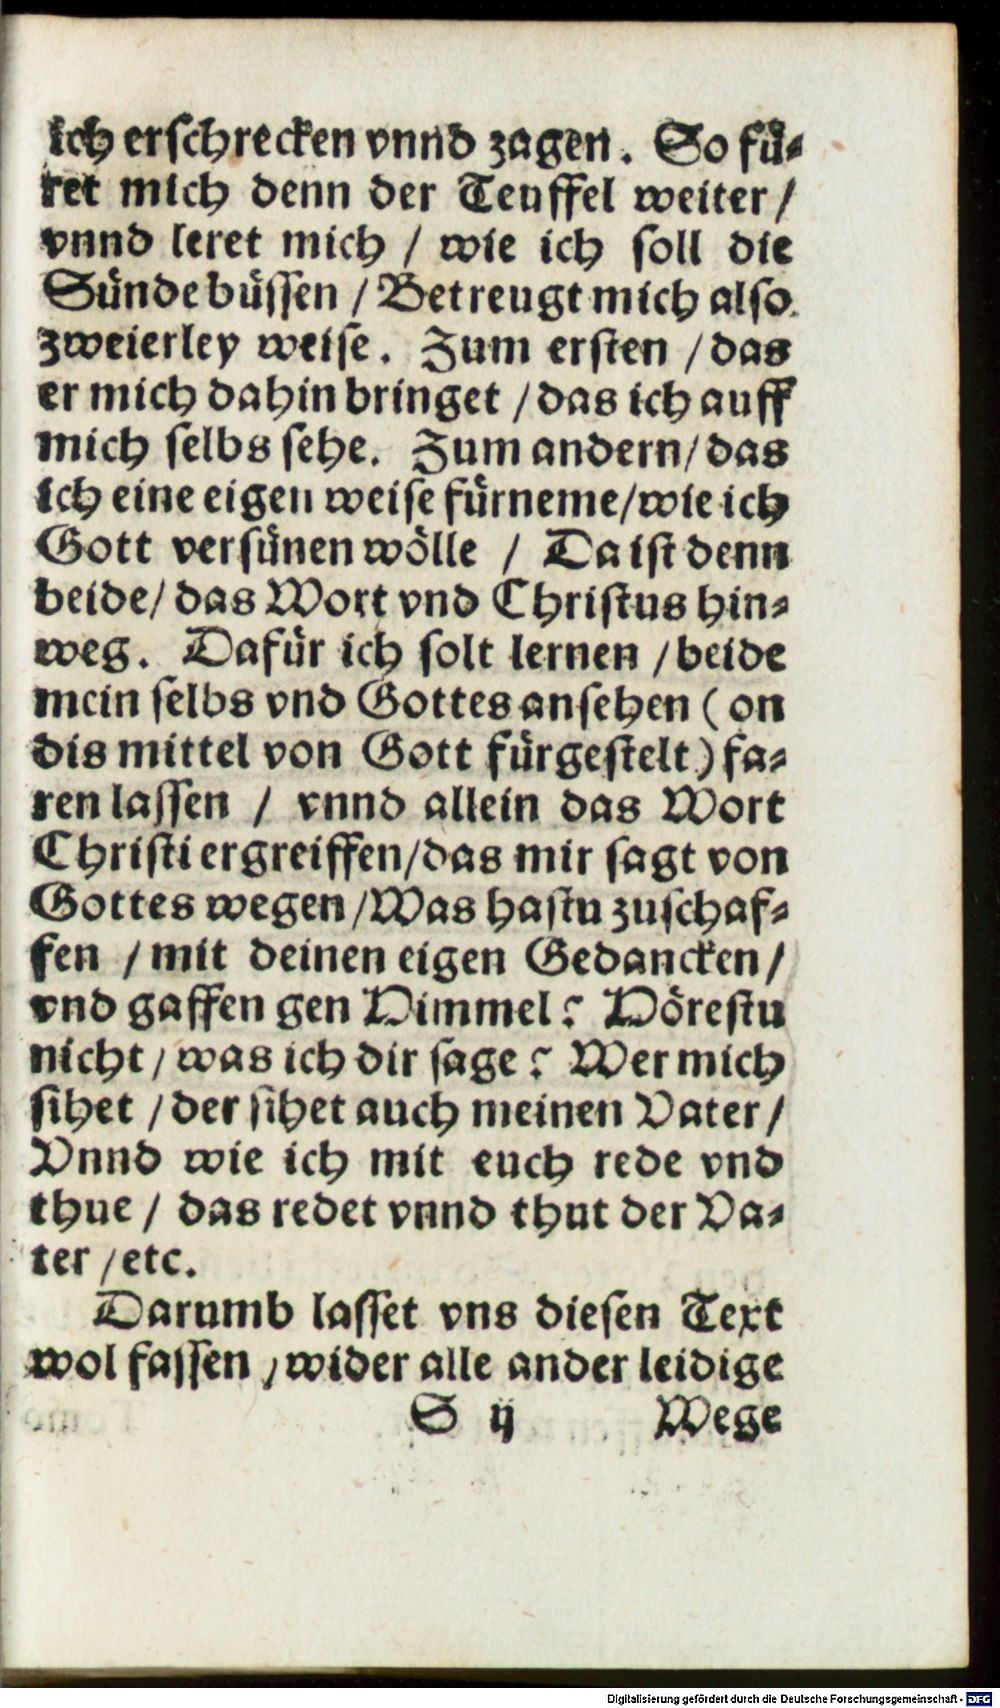 ich erschrecken vnnd zagen. So fü⸗
ret mich denn der Teuffel weiter /
vnnd leret mich / wie ich soll die
Sünde büssen / Betreugt mich also
zweierley weise. Zum ersten / das
er mich dahin bringet / das ich auff
mich selbs sehe. Zum andern / das
ich eine eigen weise fürneme / wie ich
Gott versünen wölle / Da ist denn
beide / das Wort vnd Christus hin⸗
weg. Dafür ich solt lernen / beide
mein selbs vnd Gottes ansehen ( on
dis mittel von Gott fürgestelt ) fa⸗
ren lassen / vnnd allein das Wort
Christi ergreiffen / das mir sagt von
Gottes wegen / Was hastu zuschaf⸗
fen / mit deinen eigen Gedancken /
vnd gaffen gen Himmel? Hörestu
nicht / was ich dir sage? Wer mich
sihet / der sihet auch meinen Vater /
Vnnd wie ich mit euch rede vnd
thue / das redet vnnd thut der Va⸗
ter / etc.
Darumb lasset vns diesen Text
wol fassen / wider alle ander leidige
S ij Wege
Digitalisierung gefördert durch die Deutsche Forschungsgemeinschaft - DFG